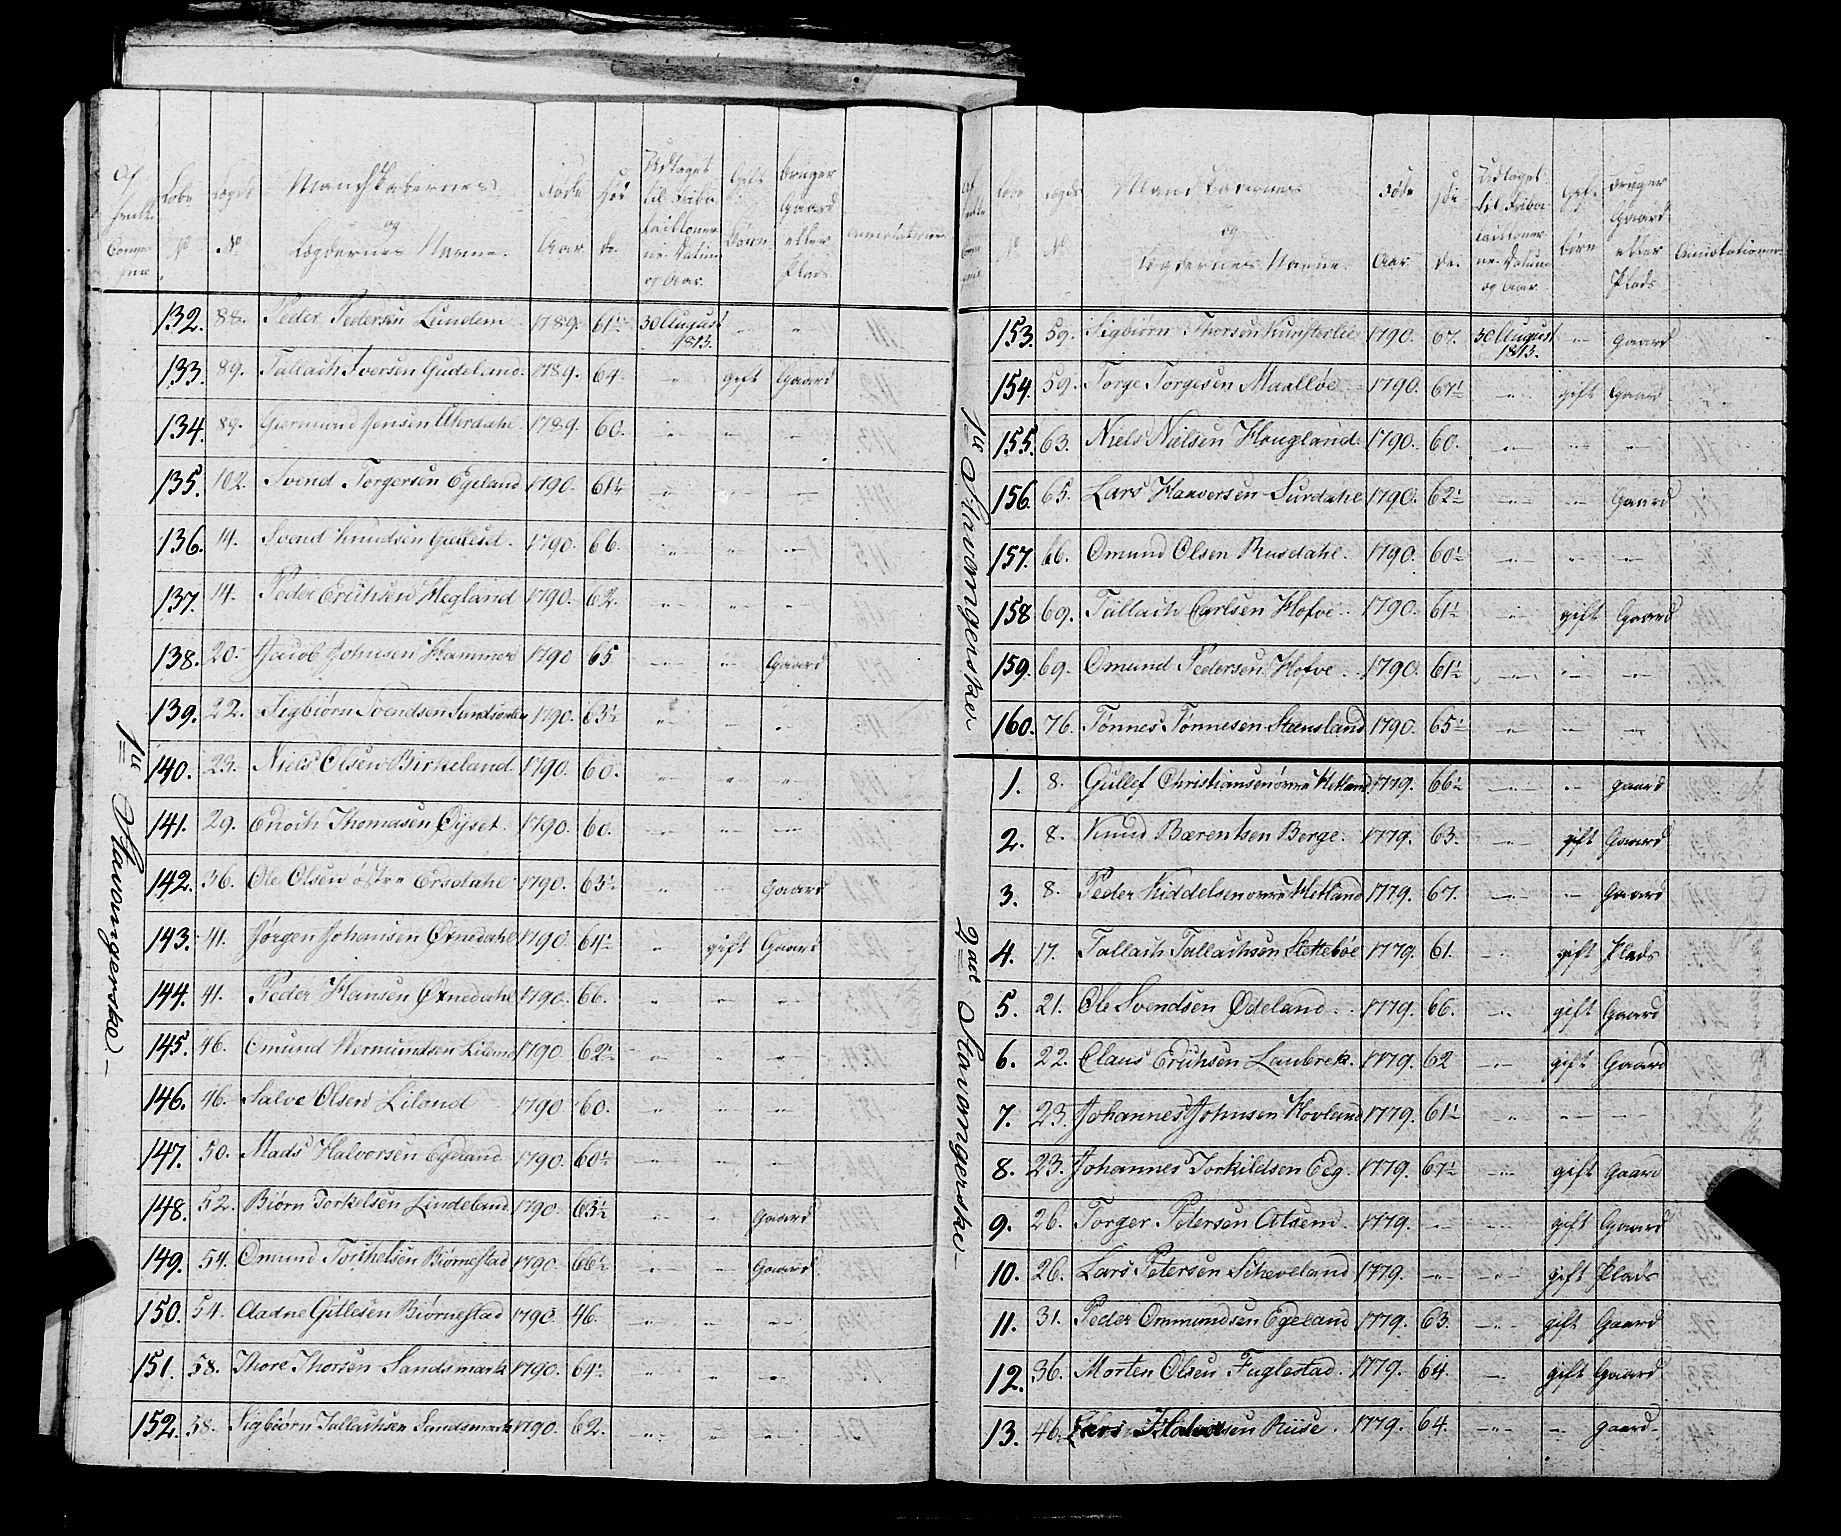 Lobe No Lægds No Mandskabernes og Lægdernes Navne. Føde Aar Høi de. Udtaget til Feltba taillonerne. Datum og Aar. Gift Børn Bruger Gaard eller Plads Annotationer
1ste Stavangerske
132. 88. Peder Pedersen Lundem 1789. 61½ 30 August 1813. " "
133. 89. Tallach Iversen Gudeland. 1789. 64. " gift Gaard
134. 89. Giermund Jensen Uhrdahl 1789. 60. " " "
135. 102. Svend Torgersen Egeland 1790. 61½ " " "
136. 14. Svend Knudsen 1790. 66. " " "
137. 14. Peder Erichsen Hegland 1790. 62. " " "
138. 20. Jacob Johnsen Hammer 1790 65 " " Gaard
139. 22. Sigbiørn Svendsen 1790. 63½ " " "
140. 23. Niels Olsen Birkeland 1790. 60. " " "
141. 29. Enoch Thomasen Øÿset. 1790. 60. " " "
142. 36. Ole Olsen østre Ersdahl 1790. 63½ " " Gaard
143. 41. Jørgen Johansen Øxnedahl 1790. 64½ " gift Gaard
144. 41. Peder Hansen Øxnedahl 1790. 66. " " "
145. 46. Omund Wermundsen 1790 62½ " " "
146. 46. Salve Olsen Liland 1790 60. " " "
147. 50. Mads Halvorsen Egeland 1790. 60½ " " "
148. 52. Biørn Torkelsen Lindeland 1790. 63½ " " Gaard
149. 54. Omund Torkelsen Biørnestad 1790. 66½ " " Gaard
150. 54. Aadne Gitlesen Biørnestad 1790 46. " " "
151. 58. Thore Thorsen Sandsmark 1790. 64½ " " "
152. 58. Sigbiørn Tallachsen Sandsmark 1790. 62. " " "
Lobe No Lægds No Mandskabernes og Lægdernes Navne. Føde Aar. Høi de. Udtaget til Feltba taillonerne. Datum og Aar. Gift Børn Bruger Gaard eller Plads Annotationer
1ste Stavangerske
153. 59. Sigbiørn Thorsen 1790. 67. 30 August 1813. " Gaard
154. 59. Torge Torgesen Maalløe 1790. 67½ " gift Gaard
155. 63. Niels Nielsen Hougland 1790. 60. " " "
156. 65. Lars Haavorsen Surdahl 1790. 62½ " " Gaard
157. 66. Omund Olsen Rusdahl. 1790. 60½ " " "
158 69. Tallach Carlsen Hofve 1790. 61½ " gift Gaard
159. 69. Omund Pedersen Hofve 1790. 61½ " " "
160. 76. Tønnes Tønnesen Steensland 1790. 65½ " " "
2den Stavangerske
1. 8. Gullef Christiansen øvre Hetland 1779. 66½ " " gaard
2. 8. Knud Bærentsen Berge. 1779. 63. " gift Gaard
3. 8. Peder Kiddelsen øvre Hetland 1779. 67. " " Gaard
4. 17. Tallach Tallachsen Stettebøe 1779. 61. " gift Plads
5. 21. Ole Svendsen Ødeland. 1779. 66. " gift Gaard
6. 22. Claus Erichsen Laubrek. 1779. 62 " gift Gaard
7. 23. Johannes Johnsen Hovland 1779. 61½ " " "
8. 23. Johannes Torkildsen Eeg. 1779. 67½ " gift Gaard
9. 26. Torger Petersen 1779. " " gift Gaard
10. 26. Lars Petersen Scheveland 1779. " " gift Plads
11. 31. Peder Ommundsen Egeland 1779. 63. " gift Gaard
12. 36. Morten Olsen Fuglestad. 1779. 64. " gift Gaard
13. 46. Lars Halvorsen Riise. 1779. 64. " " gaard